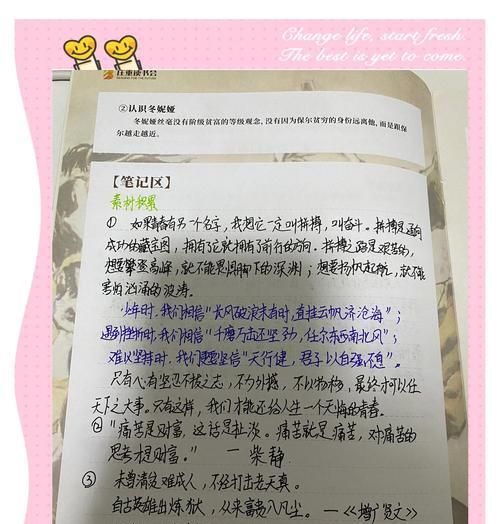 Change life, start fresh.
The best is yet to come.
在重读书会
②认识冬妮娅
冬妮娅丝毫没有阶级贫富的等级观念,没有因为保尔贫穷的身份远离他,而是跟保
尔越走越近。
【笔记区】
素材积累
① 如果青春有另一个名字,我想它一定叫拼搏,叫奋斗。拼搏是通向
成功的藏宝图,拥有它就拥有了前行的方向。拼搏之路是艰苦的,
想要攀登高峰,就不能畏惧脚下的深渊;想要扬帆起航,就
害怕汹涌的波涛。
少年时,我们相信“长风破浪会有时,直挂云帆济沧海”;
遇到挫折时,我们相信“千磨万击还坚劲,任尔东西南北风”;
难以坚持时,我们更要坚信“天行健,君子以自强不息”。
只有心有坚忍不拔之志,不为外撼,不以物移,最终才可以任
天下之大事。只有这样,我们才能还给人生一个无悔的青春。
② “痛苦是财富,这话是扯淡。痛苦就是痛苦,对痛苦的
思考才是财富。” — 柴静
③ 未曾清贫难成人,不经打击老天真。
自古英雄出炼狱,从来富贵入凡尘。 —《增广贤文》